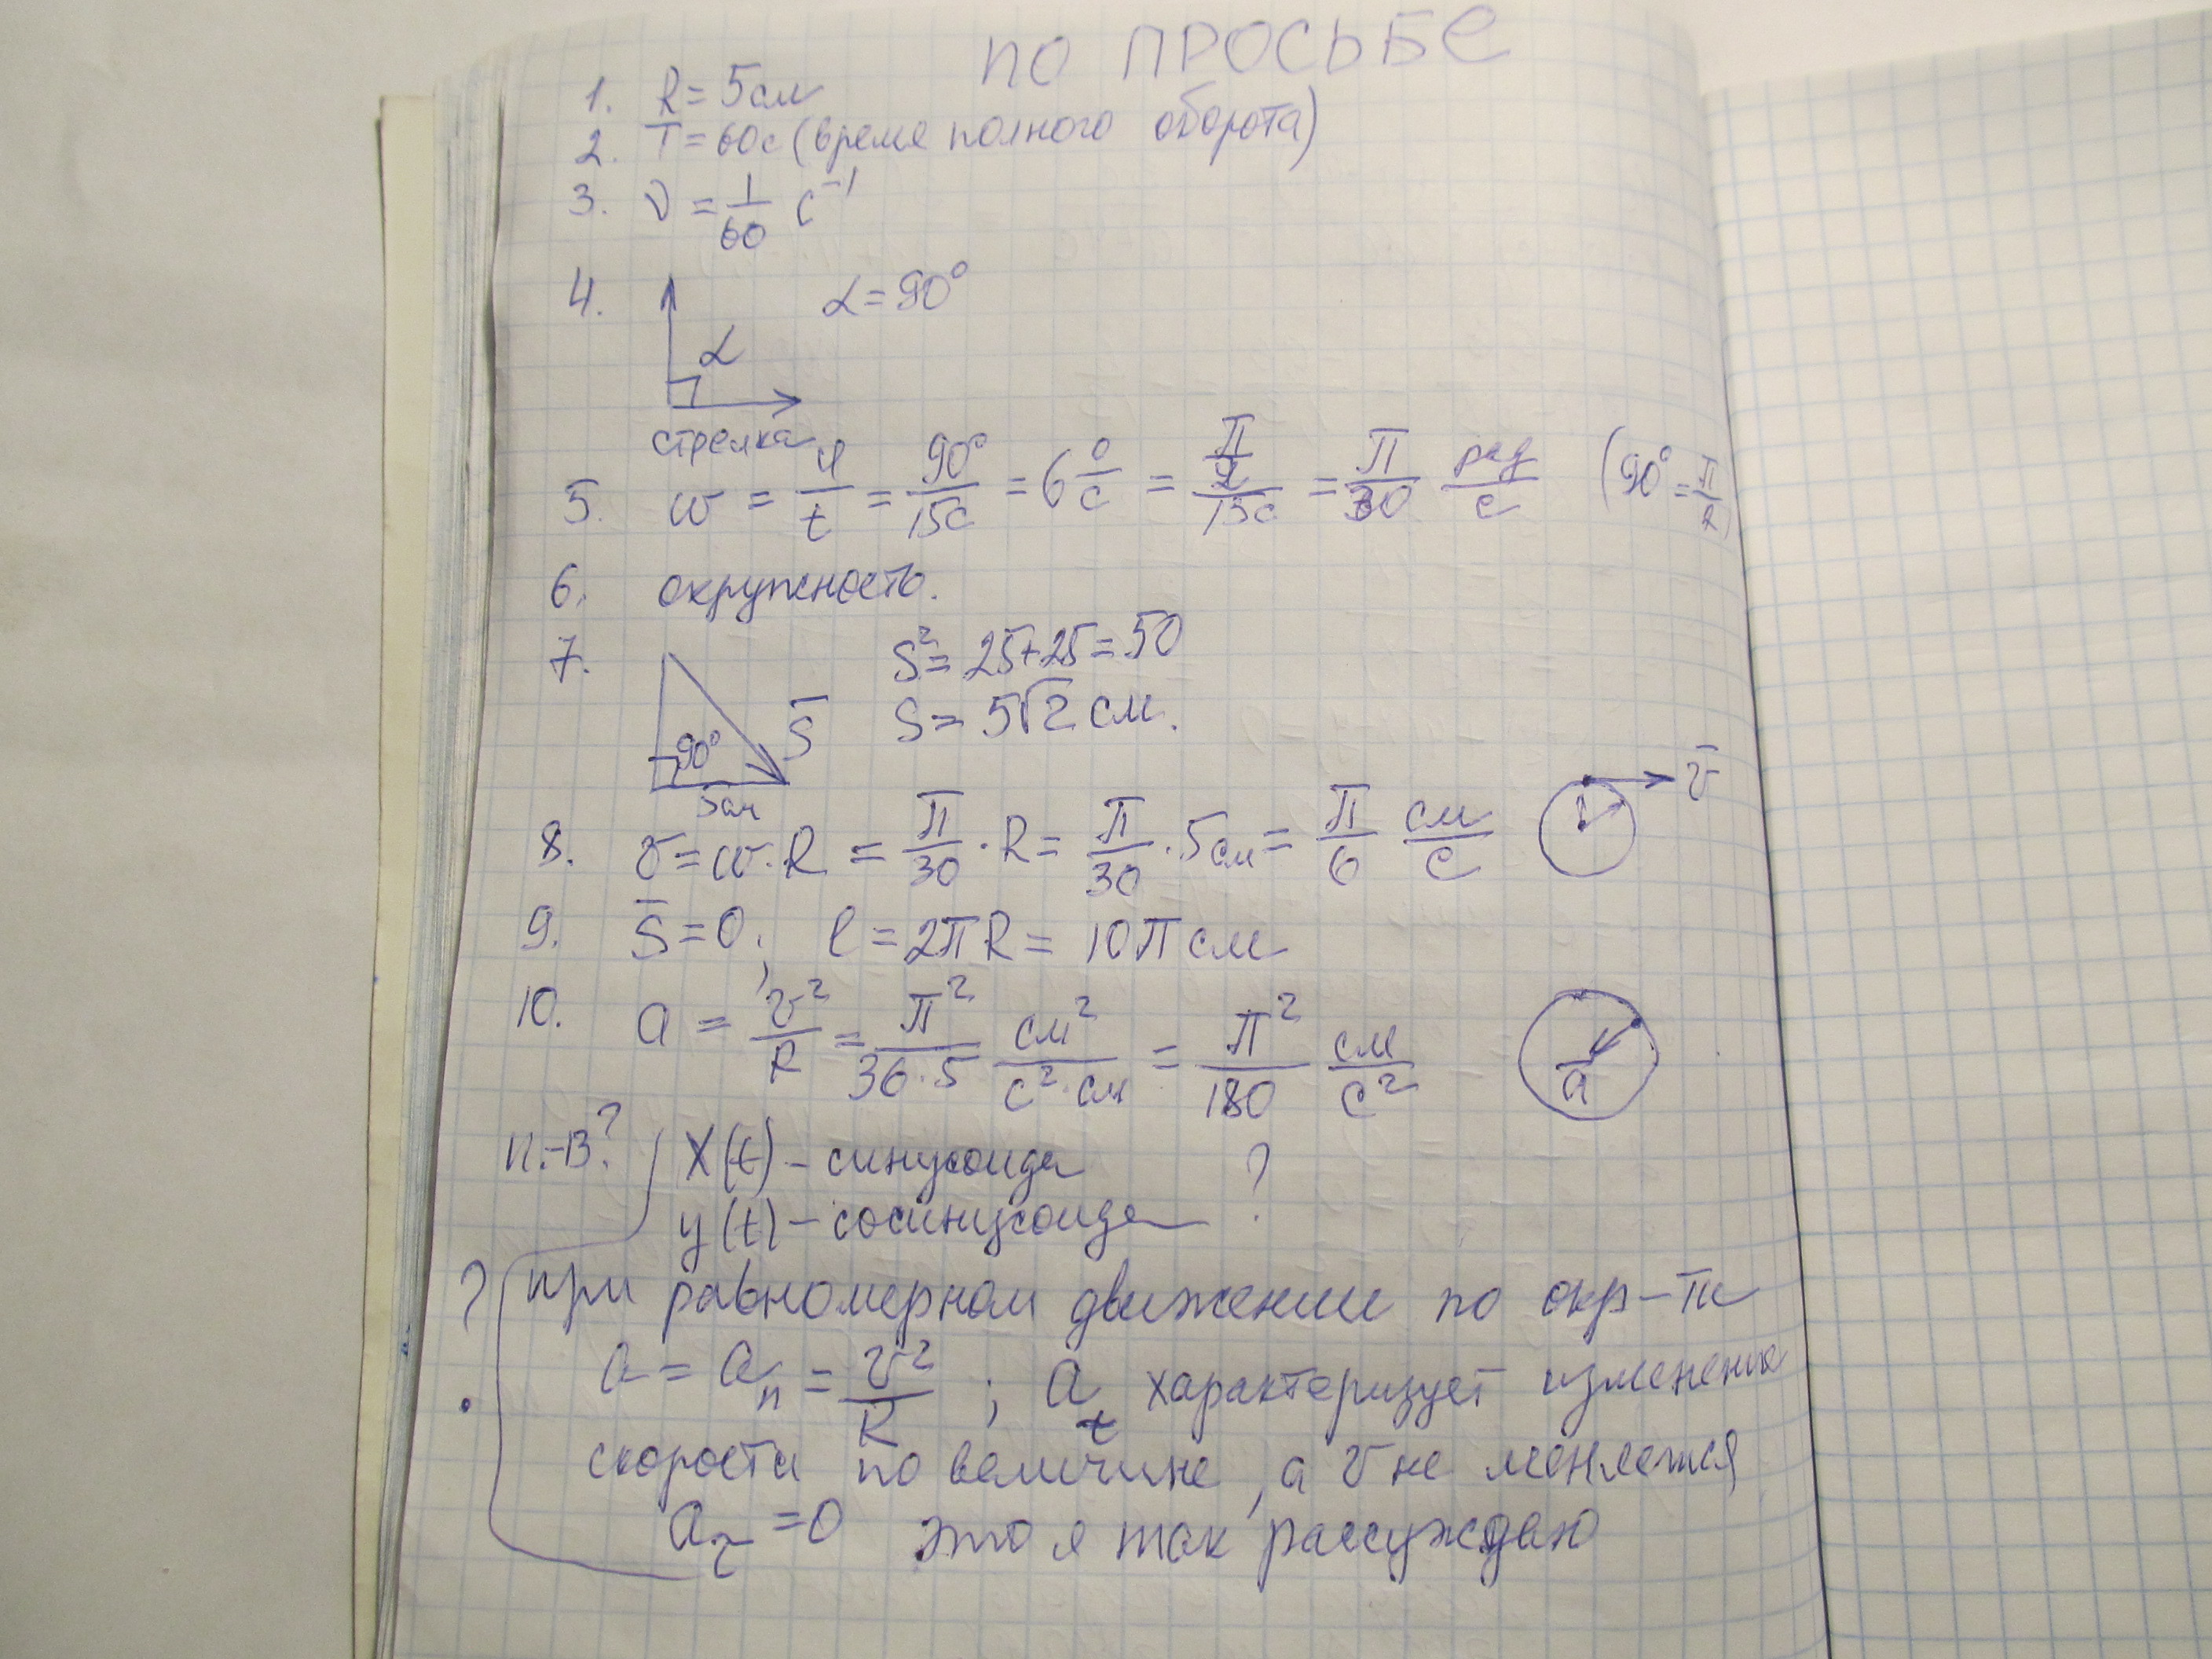 ПО ПРОСЬБЕ
1. R = 5 см
2. T = 60с (время полного оборота)
3. ν = 1/60 с⁻¹
4. α = 90°
α
стрелка
5. ω = φ/t = 90°/15с = 6 °/с = π/2/15с = π/30 рад/с (90° = π/2)
6. окружность.
7. S² = 25+25 = 50
S̄ S = 5√2 см.
90°
5см
8. v = ω·R = π/30 · R = π/30 · 5см = π/6 см/с v̄
9. S̄ = 0; l = 2πR = 10π см
10. a = v²/R = π²/36·5 см²/с²·см = π²/180 см/с² a
11.-13? x(t) – синусоида ?
y(t) – косинусоида
? при равномерном движении по окр-ти
a = aₙ = v²/R ; a_τ характеризует изменение
скорости по величине, а v не меняется
a_τ = 0 это я так рассуждаю